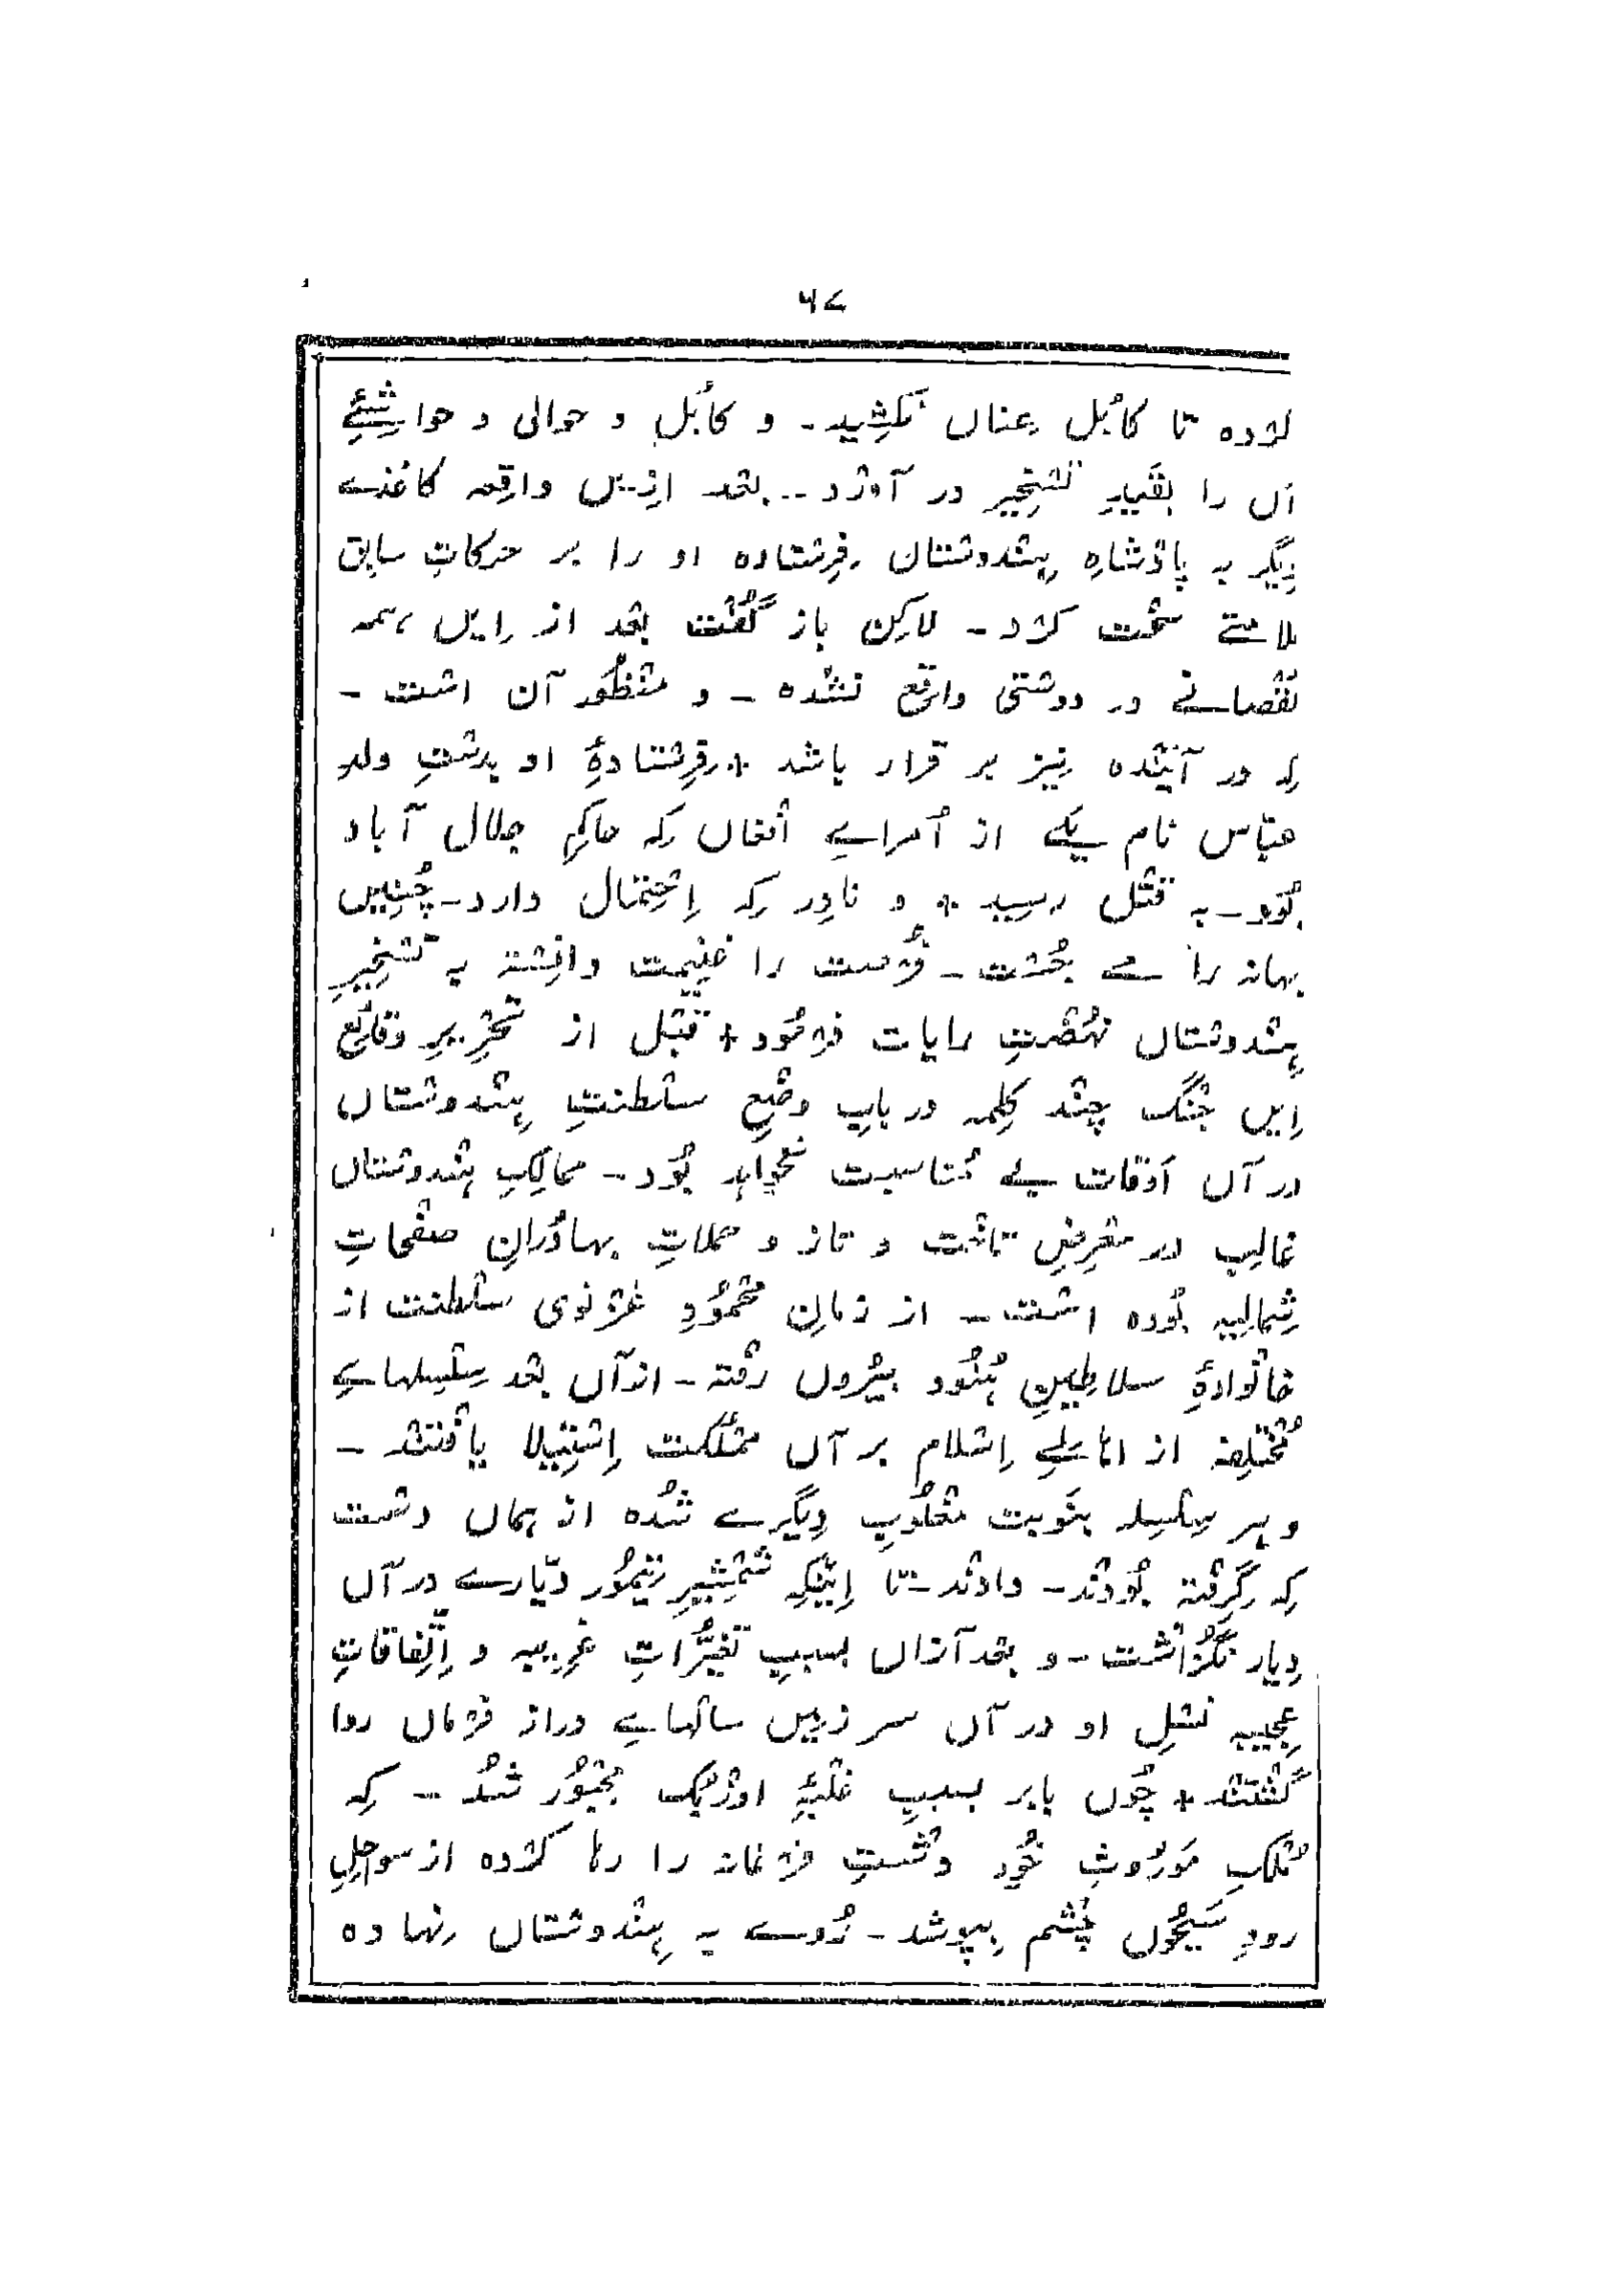 ۶۷
کرده تا کابُل عِناں نکشِید۔ و کابُل و حوالی و حواشیِٔ
آں را بقَیدِ تسخِیر در آورد۔ بعد ازیں واقِعہ کاغذے
دِیگر بہ پادشاہِ ہِندوستان فرِستادہ او را بر حرکاتِ سابِق
ملامتے سخت کرد۔ لاکِن باز گُفت بعد از اِیں ہمہ
نُقصانے در دوستی واقِع نشُدہ۔ و منظُور آن است۔
کہ در آئندہ نِیز بر قرار باشد + فرِستادۂ او بدستِ ولدِ
عبّاس نام یکے از اُمراے افغاں کہ حاکمِ جلال آباد
بُود۔ بہ قتل رسِید + و نادِر کہ اِحتِمال دارد۔ چُنِیں
بہانہ را مے جُست۔ فُرصت را غنِیمت دانِستہ بہ تسخِیرِ
ہِندوستاں نہضتِ رایات فرمُود + قبل از تحرِیرِ وقائعِ
اِیں جنگ چند کلِمہ در بابِ وضعِ سلطنتِ ہِندوستاں
در آں اَوقات بے مُناسبت نخواہد بُود۔ ممالِکِ ہِندوستاں
غالِب در معرِضِ تاخت و تاز و حملاتِ بہادُرانِ صفحاتِ
شِمالِیہ بُودہ است۔ از زمانِ محمُودِ غزنوی سلطنت از
خانوادۂ سلاطِینِ ہُنُود بیرُوں رفتہ۔ ازآں بعد سِلسِلہاے
مُختلِفہ از اہالیِ اِسلام بر آں مملکت اِستِیلا یافتند۔
و ہر سِلسِلہ بنَوبت مغلُوبِ دِیگرے شُدہ از ہماں دست
کہ گرِفتہ بُودند۔ دادند۔ تا اِینکہ شمشِیرِ تیمُور دیّارے در آں
دِیار نگُذاشت۔ و بعد آزاں بسببِ تغیُّراتِ غرِیبہ و اِتّفاقاتِ
عجِیبہ نسلِ او در آں سر زمِیں سالہاے دراز فرماں روا
گشتند + چُوں بابر بسببِ غلبۂ اوزبک مجبُور شُد۔ کہ
مُلکِ مَورُوثِ خُود دشتِ فرغانہ را رہا کردہ از سواحلِ
رودِ سَیحُوں چشم بپوشد۔ رُوے بہ ہِندوستاں نِہادہ